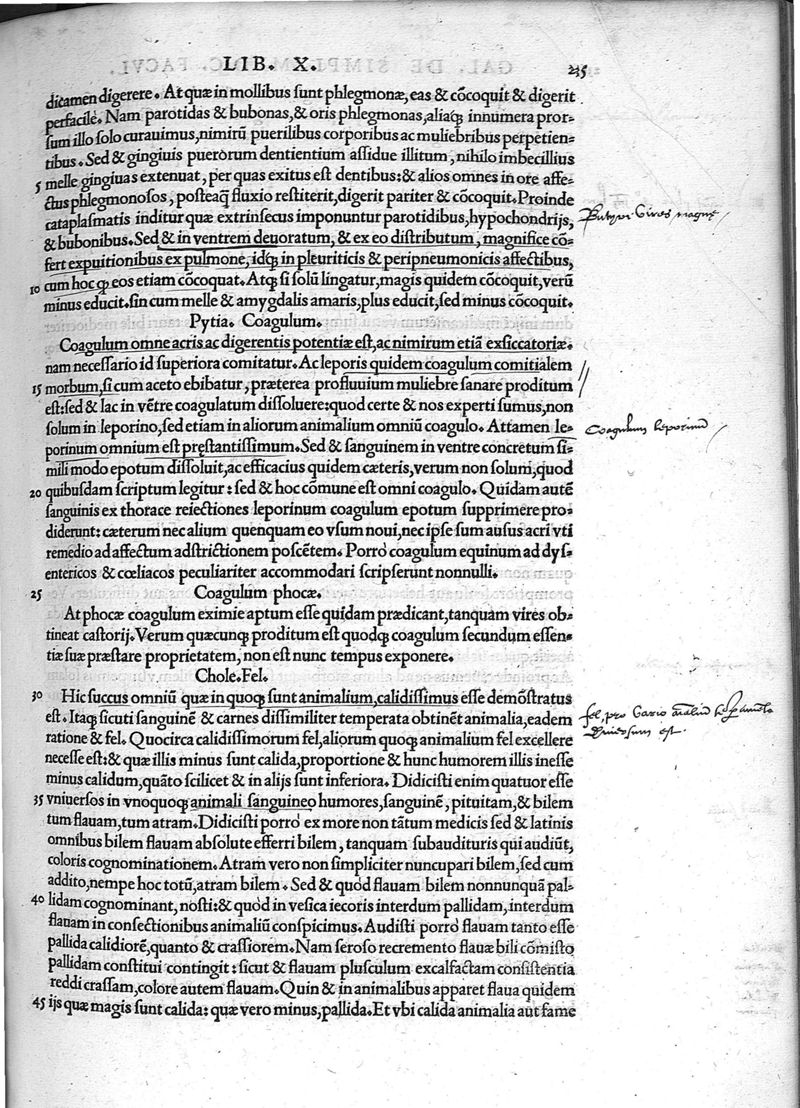 LIB. X. 235
dicamen digerere. At quæ in mollibus sunt phlegmonæ, eas & cõcoquit & digerit
perfacile. Nam parotidas & bubonas, & oris phlegmonas, aliaq; innumera pror-
sum illo solo curauimus, nimirũ puerilibus corporibus ac muliebribus perpetien-
tibus. Sed & gingiuis puerorum dentientium assidue illitum, nihilo imbecillius
5 melle gingiuas extenuat, per quas exitus est dentibus: & alios omnes in ore affe-
ctus phlegmonosos, posteaq̃ fluxio restiterit, digerit pariter & cõcoquit. Proinde
cataplasmatis inditur quæ extrinsecus imponuntur parotidibus, hypochondrijs,
& bubonibus. Sed & in ventrem deuoratum, & ex eo distributum, magnifice cõ-
fert expuitionibus ex pulmone, idq; in pleuriticis & peripneumonicis affectibus,
10 cum hoc q̃ eos etiam cõcoquat. Atq; si solũ lingatur, magis quidem cõcoquit, verũ
minus educit. sin cum melle & amygdalis amaris, plus educit, sed minus cõcoquit.
Pytia. Coagulum.
Coagulum omne acris ac digerentis potentiæ est, ac nimirum etiã exsiccatoriæ.
nam necessario id superiora comitatur. Ac leporis quidem coagulum comitialem
15 morbum, si cum aceto ebibatur, præterea profluuium muliebre sanare proditum
est: sed & lac in vẽtre coagulatum dissoluere: quod certe & nos experti sumus, non
solum in leporino, sed etiam in aliorum animalium omniũ coagulo. Attamen le-
porinum omnium est pręstantissimum. Sed & sanguinem in ventre concretum si-
mili modo epotum dissoluit, ac efficacius quidem cæteris, verum non solum, quod
20 quibusdam scriptum legitur: sed & hoc cõmune est omni coagulo. Quidam autẽ
sanguinis ex thorace reiectiones leporinum coagulum epotum supprimere pro-
diderunt: cæterum nec alium quenquam eo vsum noui, nec ipse sum ausus acri vti
remedio ad affectum adstrictionem poscẽtem. Porro coagulum equinum ad dys-
entericos & cœliacos peculiariter accommodari scripserunt nonnulli.
25 Coagulum phocæ.
At phocæ coagulum eximie aptum esse quidam prædicant, tanquam vires ob-
tineat castorij. Verum quæcunq; proditum est quodq; coagulum secundum essen-
tiæ suæ præstare proprietatem, non est nunc tempus exponere.
Chole. Fel.
30 Hic succus omniũ quæ in quoq; sunt animalium, calidissimus esse demõstratus
est. Itaq; sicuti sanguinẽ & carnes dissimiliter temperata obtinẽt animalia, eadem
ratione & fel. Quocirca calidissimorum fel, aliorum quoq; animalium fel excellere
necesse est: & quæ illis minus sunt calida, proportione & hunc humorem illis inesse
minus calidum, quãto scilicet & in alijs sunt inferiora. Didicisti enim quatuor esse
35 vniuersos in vnoquoq; animali sanguineo humores, sanguinẽ, pituitam, & bilem
tum flauam, tum atram. Didicisti porro ex more non tãtum medicis sed & latinis
omnibus bilem flauam absolute efferri bilem, tanquam subaudituris qui audiũt,
coloris cognominationem. Atram vero non simpliciter nuncupari bilem, sed cum
addito, nempe hoc totũ, atram bilem. Sed & quod flauam bilem nonnunquã pal-
40 lidam cognominant, nosti: & quod in vesica iecoris interdum pallidam, interdum
flauam in consectionibus animaliũ conspicimus. Audisti porro flauam tanto esse
pallida calidiorẽ, quanto & crassiorem. Nam seroso recremento flauæ bili cõmisto
pallidam constitui contingit: sicut & flauam plusculum excalfactam consistentia
reddi crassam, colore autem flauam. Quin & in animalibus apparet flaua quidem
45 ijs quæ magis sunt calida: quæ vero minus, pallida. Et vbi calida animalia aut fame
Coagulum leporinũ
fel, pro
est.